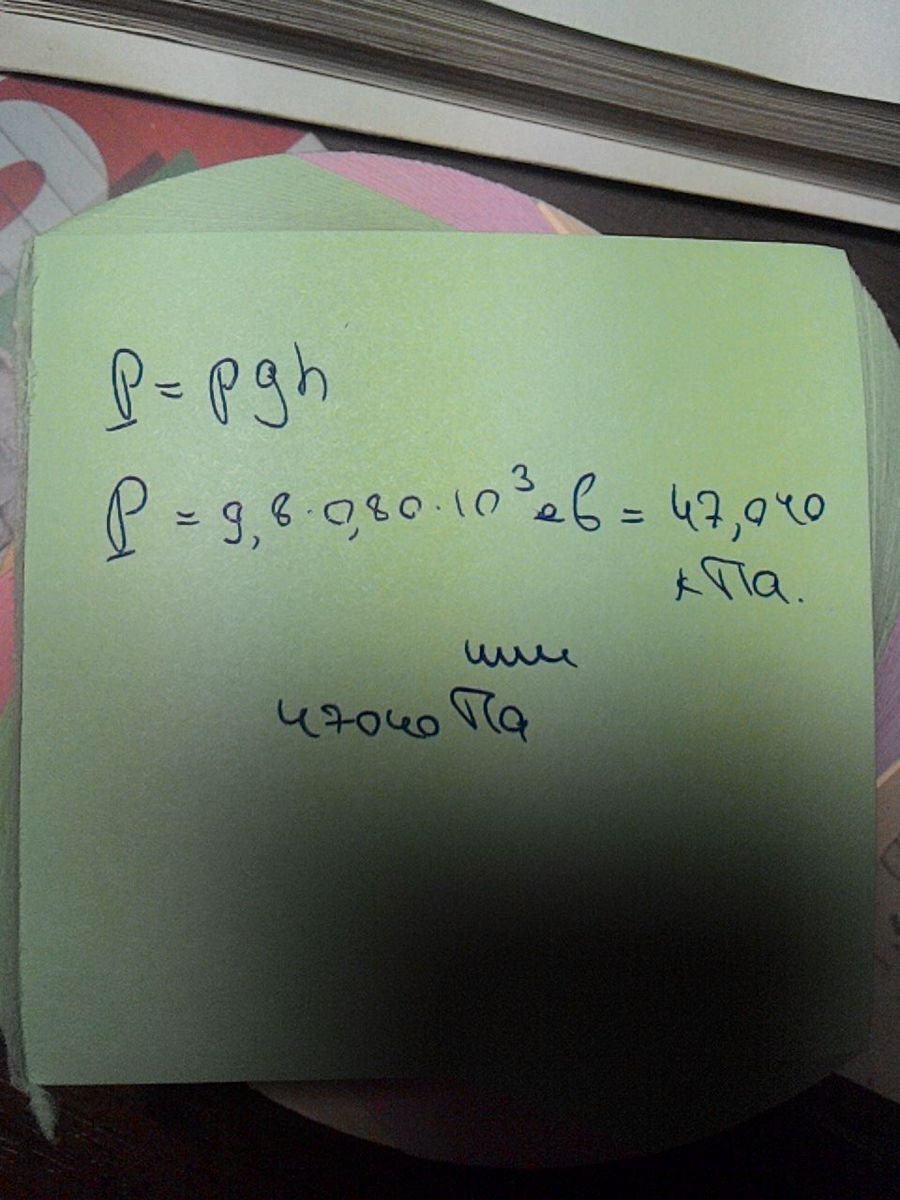 P = ρgh
P = 9,8·0,80·10³ • 6 = 47,040
кПа.
или
47040 Па